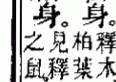 身。
釋木
柏葉
身。
見釋
之鼠